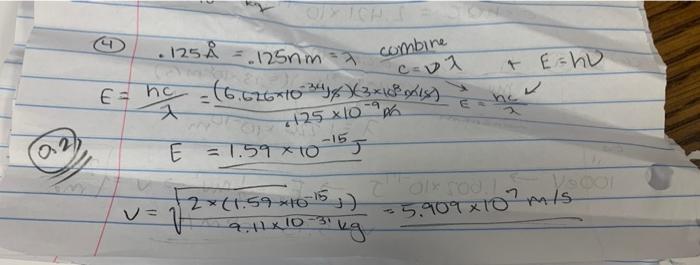 ④ .125Å = .125nm = λ combine c=νλ + E=hν
E = hc/λ = (6.626×10⁻³⁴Js)(3×10⁸m/s)/.125×10⁻⁹m E = hc/λ ✓
a.2) E = 1.59×10⁻¹⁵J
v = √(2×(1.59×10⁻¹⁵J)/9.11×10⁻³¹kg) = 5.909×10⁷m/s